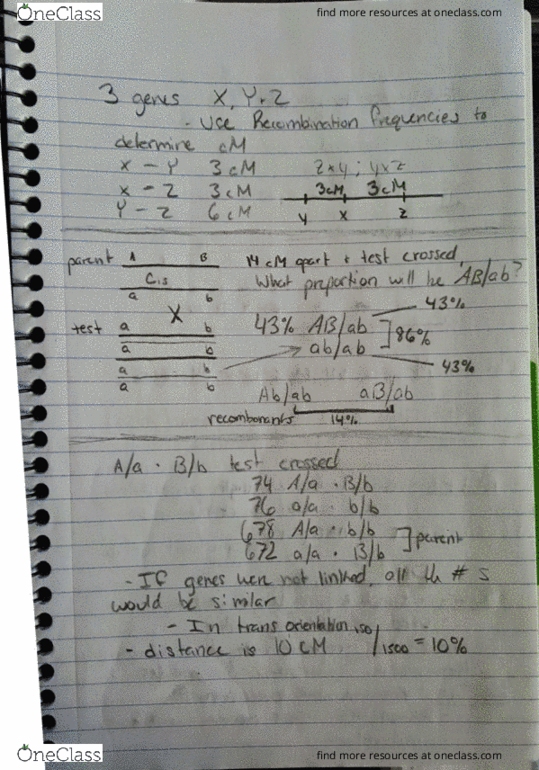 OneClass
find more resources at oneclass.com
3 genes X, Y, Z
- Use Recombination frequencies to
determine cM
X - Y 3 cM zxy ; yxz
X - Z 3 cM 3cM 3cM
Y - Z 6 cM y x z
parent A B 14 cM apart + test crossed,
Cis What proportion will be AB/ab?
a b
43%
X
test a b 43% AB/ab
86%
a b ab/ab
a b 43%
a b
Ab/ab aB/ab
recombonants 14%
A/a · B/b test crossed
74 A/a · B/b
76 a/a · b/b
678 A/a · b/b
672 a/a · B/b ] parent
- If genes were not linked, all th # s
would be similar
- In trans orientation 150/1500 = 10%
- distance is 10 cM
OneClass
find more resources at oneclass.com